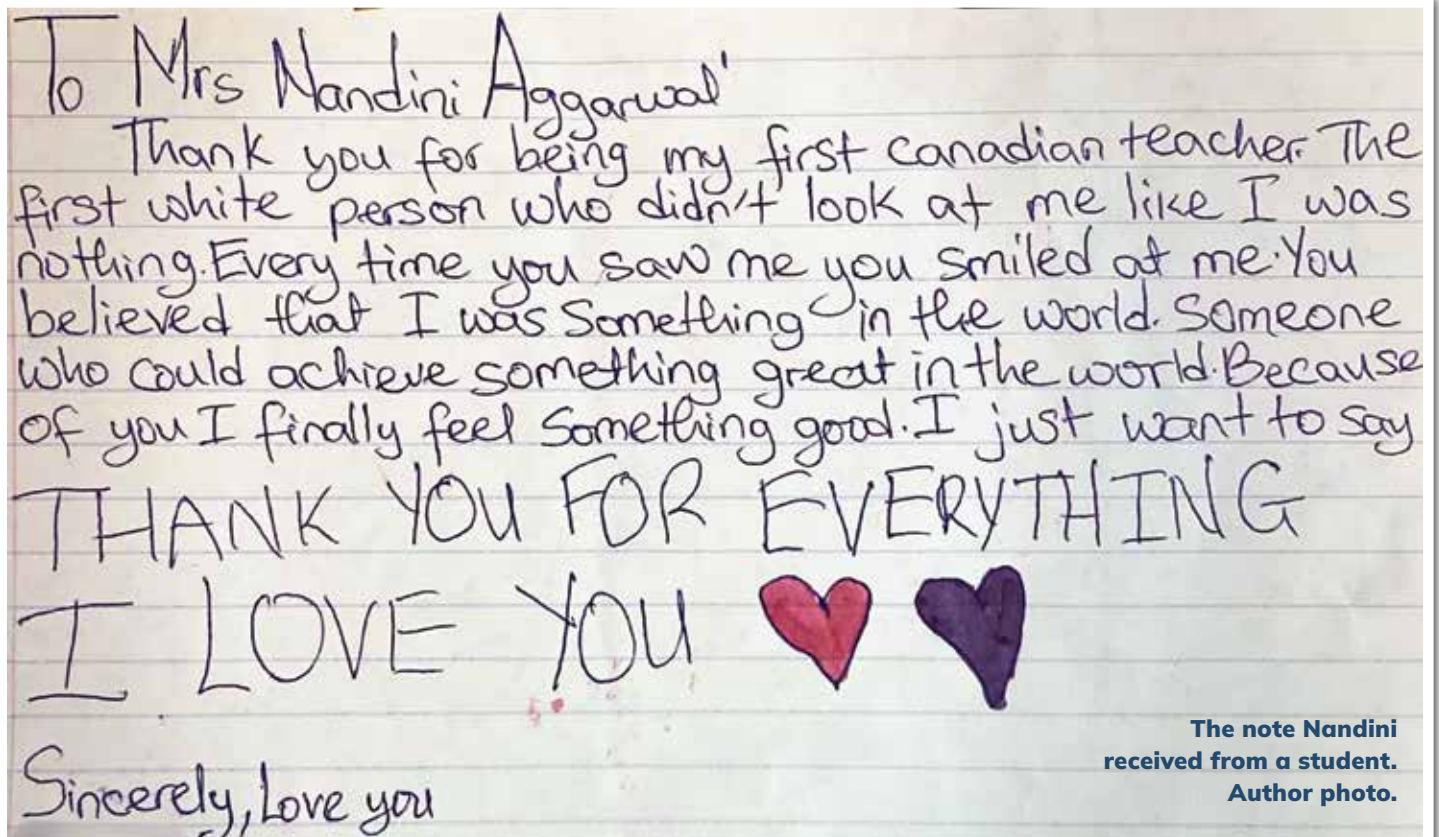 To Mrs Nandini Aggarwal'
Thank you for being my first canadian teacher. The
first white person who didn't look at me like I was
nothing. Every time you saw me you smiled at me. You
believed that I was Something in the world. Someone
who could achieve something great in the world. Because
of you I finally feel Something good. I just want to say
THANK YOU FOR EVERYTHING
I LOVE YOU
Sincerely, Love you
The note Nandini
received from a student.
Author photo.